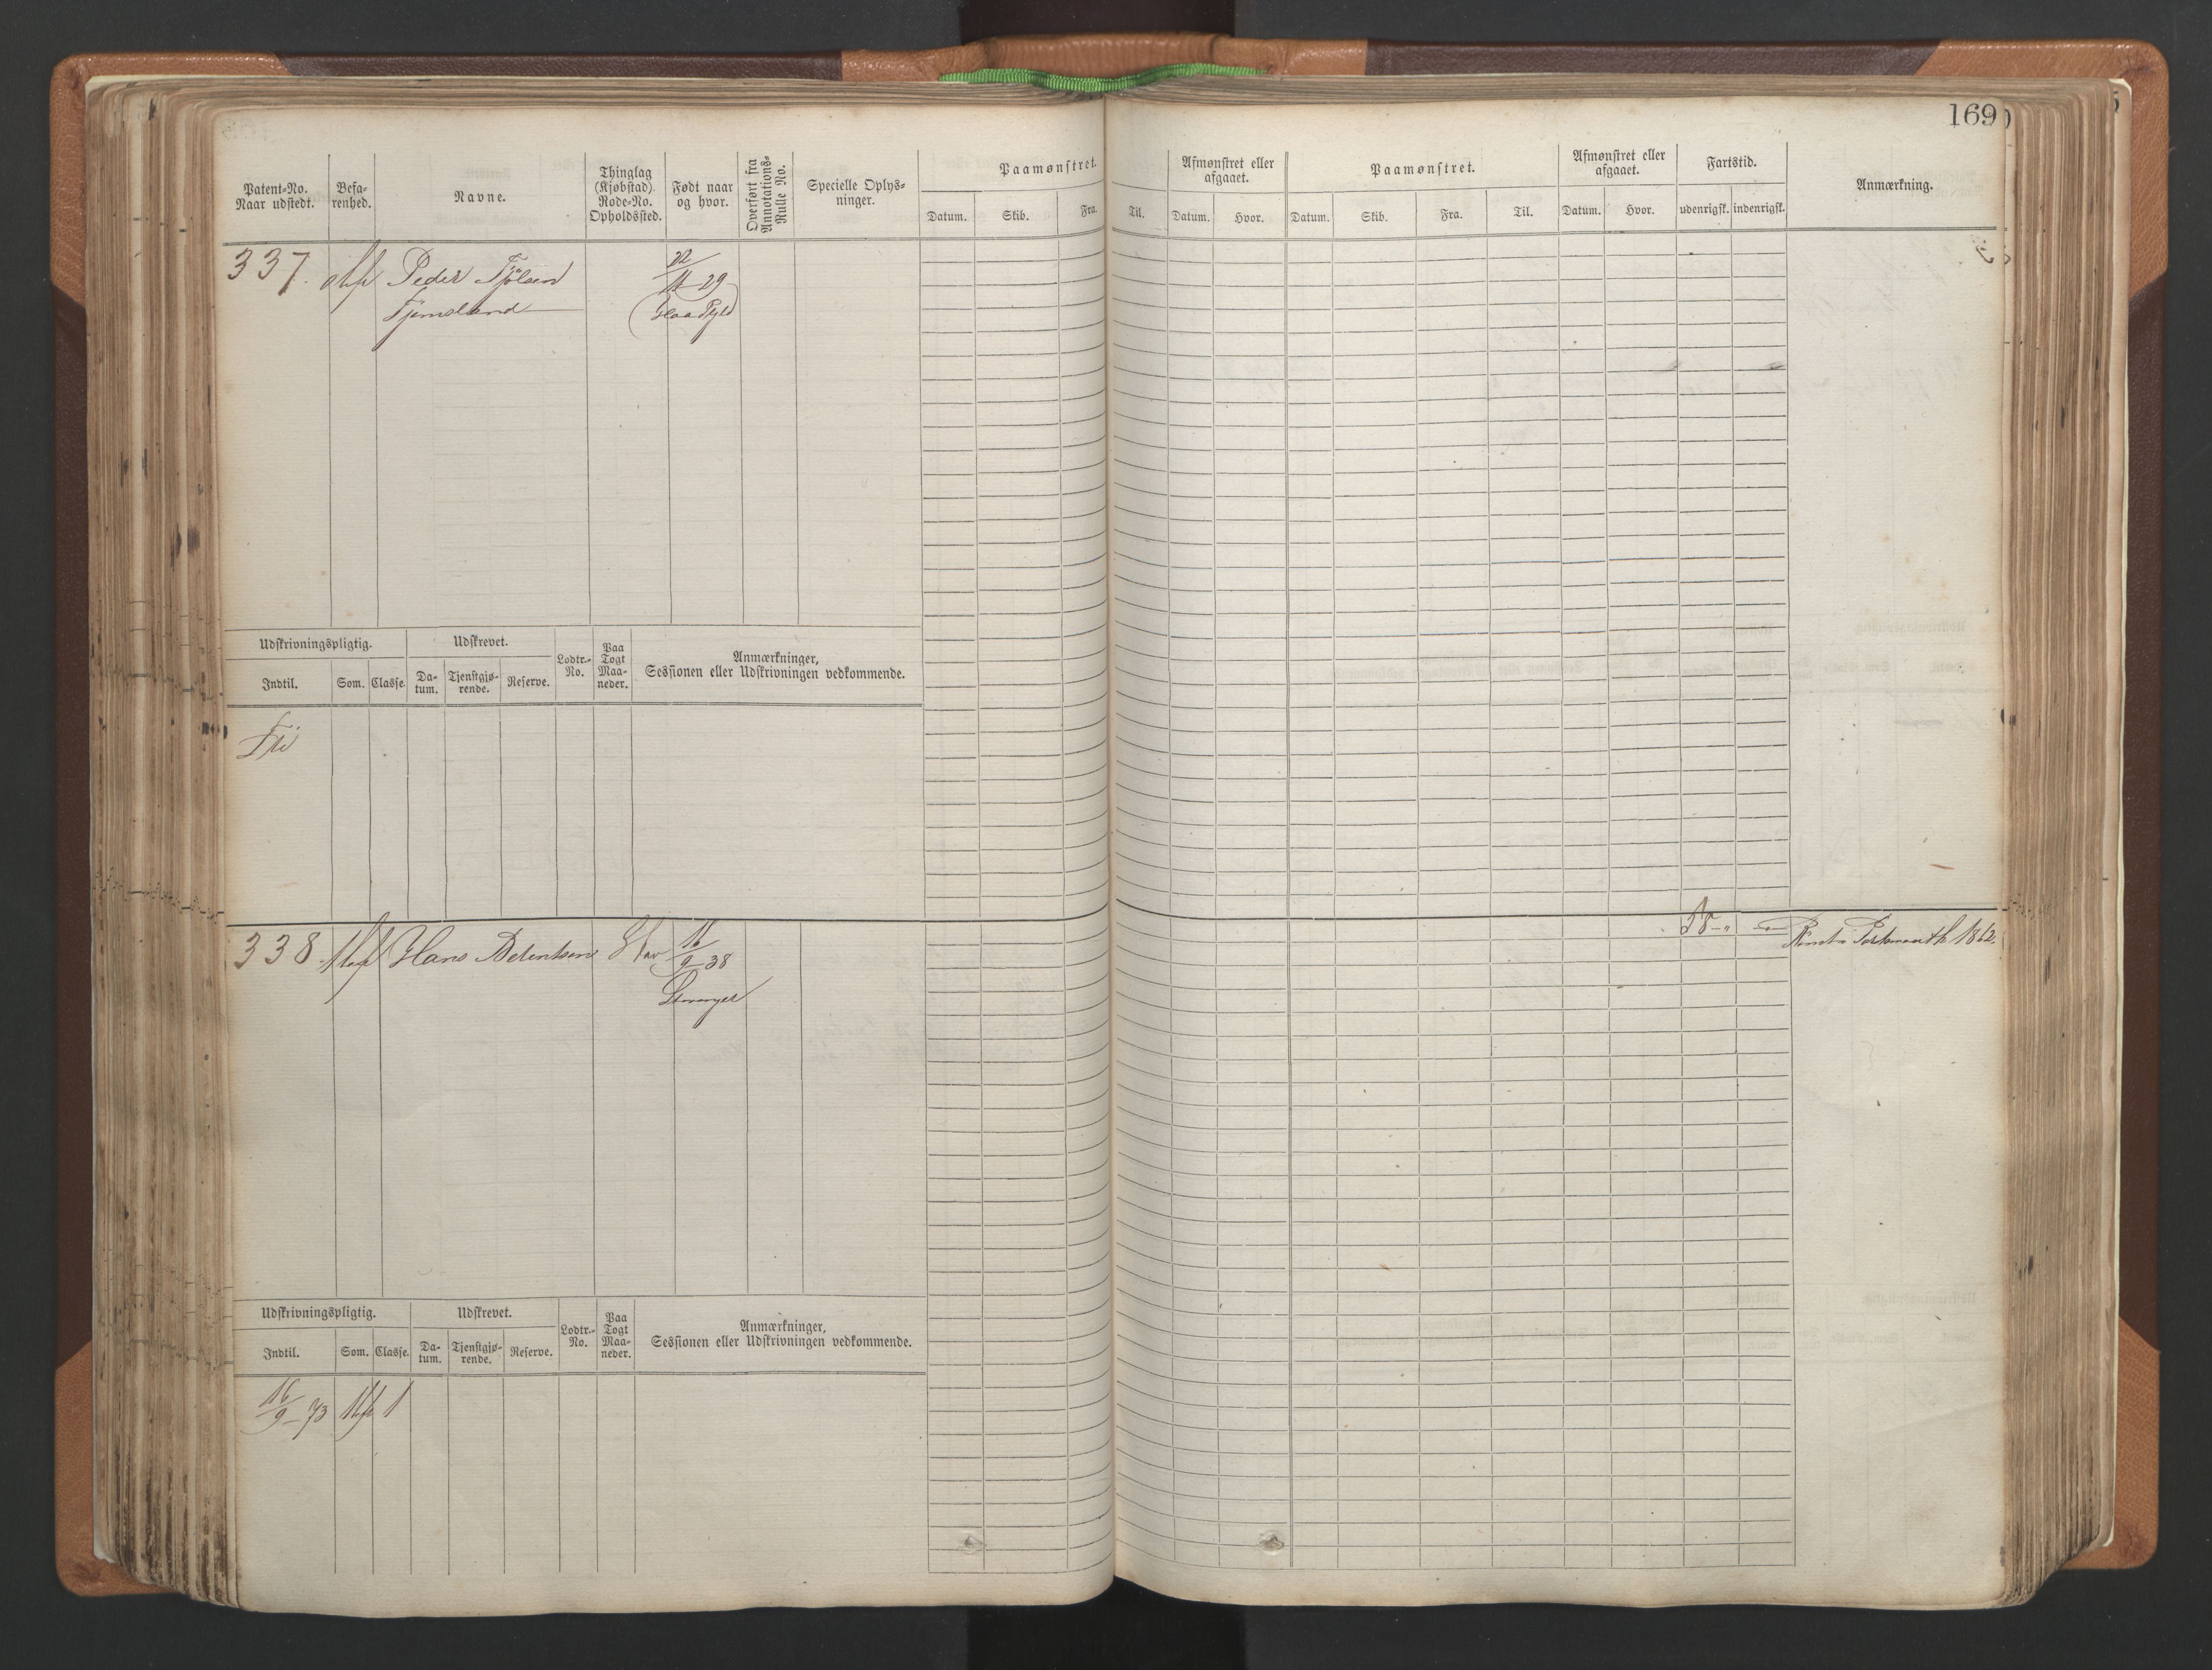 169
Patent-No. Naar udstedt.
Befa- renhed.
Navne.
Thinglag (Kjøbstad) Rode-No. Opholdssted.
Født naar og hvor.
Overført fra Annotations- Rulle No.
Specielle Oplys- ninger.
Paamønstret.
Datum. Skib. Fra. Til.
Afmønstret eller afgaaet.
Datum. Hvor.
Paamønstret.
Datum. Skib. Fra. Til.
Afmønstret eller afgaaet.
Datum. Hvor.
Fartstid.
udenrigsk. indenrigsk.
Anmærkning.
337. Peder 22/11 29
Udskrivningspligtig. Udskrevet. Lodtr.- No. Paa Togt Maa- neder. Anmærkninger, Sessionen eller Udskrivningen vedkommende.
Indtil. Som. Classe. Da- tum. Tjenstgjø- rende. Reserve.
Fri
338 Hans Berentsen Stav 16/9 38 1862.
Stavanger
Udskrivningspligtig. Udskrevet. Lodtr.- No. Paa Togt Maa- neder. Anmærkninger, Sessionen eller Udskrivningen vedkommende.
Indtil. Som. Classe. Da- tum. Tjenstgjø- rende. Reserve.
16/9 - 73 1